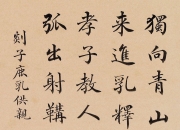 獨向青山
來進乳釋
孝子教人
孤出射韝
剡子鹿乳供親